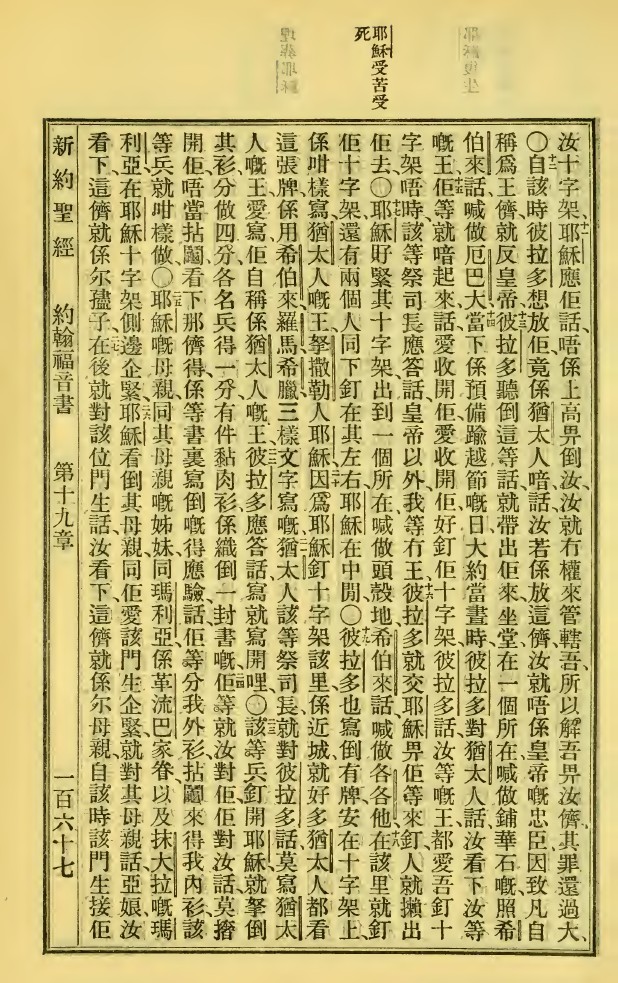 耶穌受苦受
死
汝十字架、十一耶穌應佢話、唔係上高畀倒汝、汝就冇權來管轄吾、所以解吾畀汝儕、其罪還過大、
〇十二自該時彼拉多想放佢、竟係猶太人喑話、汝若係放這儕、汝就唔係皇帝嘅忠臣、因致凡自
稱爲王儕、就反皇帝、十三彼拉多聽倒這等話、就帶出佢來、坐堂在一個所在、喊做鋪華石嘅、照希
伯來話喊做厄巴大、十四當下係預備踰越節嘅日、大約當晝時、彼拉多對猶太人話、汝看下汝等
嘅王、十五佢等就喑起來話、愛收開佢、愛收開佢、好釘佢十字架、彼拉多話、汝等嘅王、都愛吾釘十
字架唔時、該等祭司長應答話、皇帝以外、我等冇王、十六彼拉多就交耶穌畀佢等來釘、人就攋出
佢去〇十七耶穌好緊其十字架出到一個所在、喊做頭殼地、希伯來話喊做各各他、十八在該里就釘
佢十字架、還有兩個人同下釘、在其左右、耶穌在中間〇十九彼拉多也寫倒有牌、安在十字架上、
係咁樣寫、猶太人嘅王、拏撒勒人耶穌、二十因爲耶穌釘十字架該里係近城、就好多猶太人都看
這張牌、係用希伯來羅馬希臘三樣文字寫嘅、二一猶太人該等祭司長、就對彼拉多話、莫寫猶太
人嘅王、愛寫佢自稱係猶太人嘅王、二二彼拉多應答話、寫就寫開哩〇二三該等兵釘開耶穌、就拏倒
其衫、分做四分、各名兵得一分、有件黏肉衫、係織倒一封書嘅、二四佢等就汝對佢佢對汝話、莫撦
開佢、唔當拈鬮看下那儕得、係等書裏寫倒嘅得應驗、話、佢等分我外衫、拈鬮來得我內衫、該
等兵就咁樣做〇二五耶穌嘅母親、同其母親嘅姊妹、同瑪利亞、係革流巴家眷、以及抹大拉嘅瑪
利亞、在耶穌十字架側邊企緊、二六耶穌看倒其母親、同佢愛該門生企緊、就對其母親話、亞娘、汝
看下、這儕就係尔孻子、二七在後就對該位門生話、汝看下、這儕就係尔母親、自該時該門生接佢
新約聖經　約翰福音書　第十九章　一百六十七